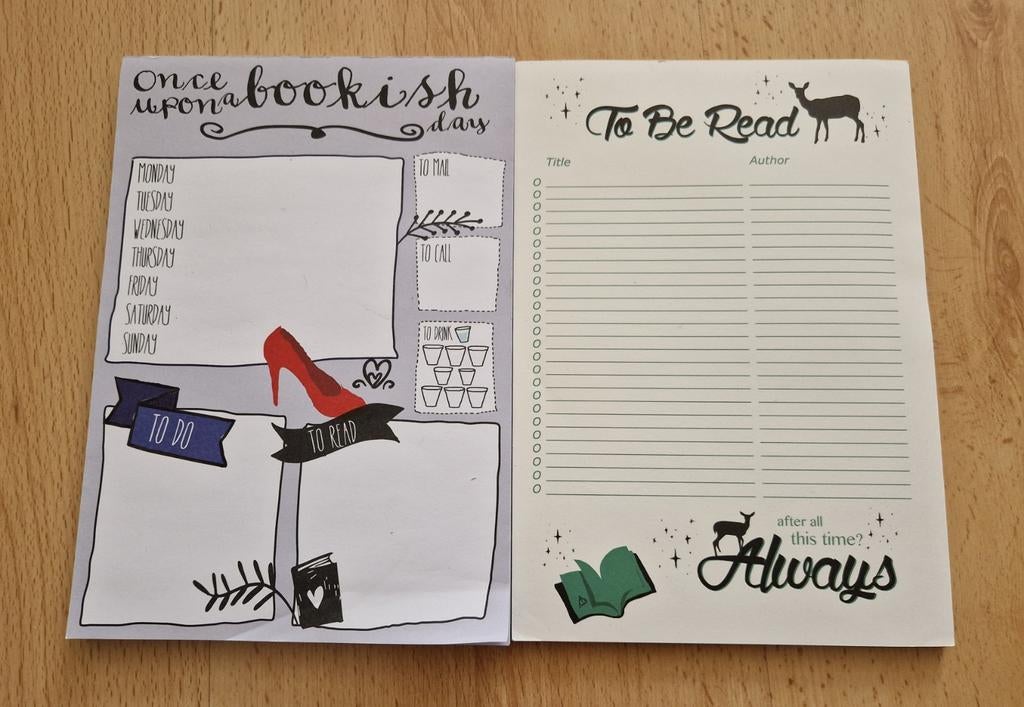 Once
upon a bookish
day
MONDAY
TUESDAY
WEDNESDAY
THURSDAY
FRIDAY
SATURDAY
SUNDAY
TO MAIL
TO CALL
TO DRINK
TO DO
TO READ
To Be Read
Title Author
after all
this time?
Always